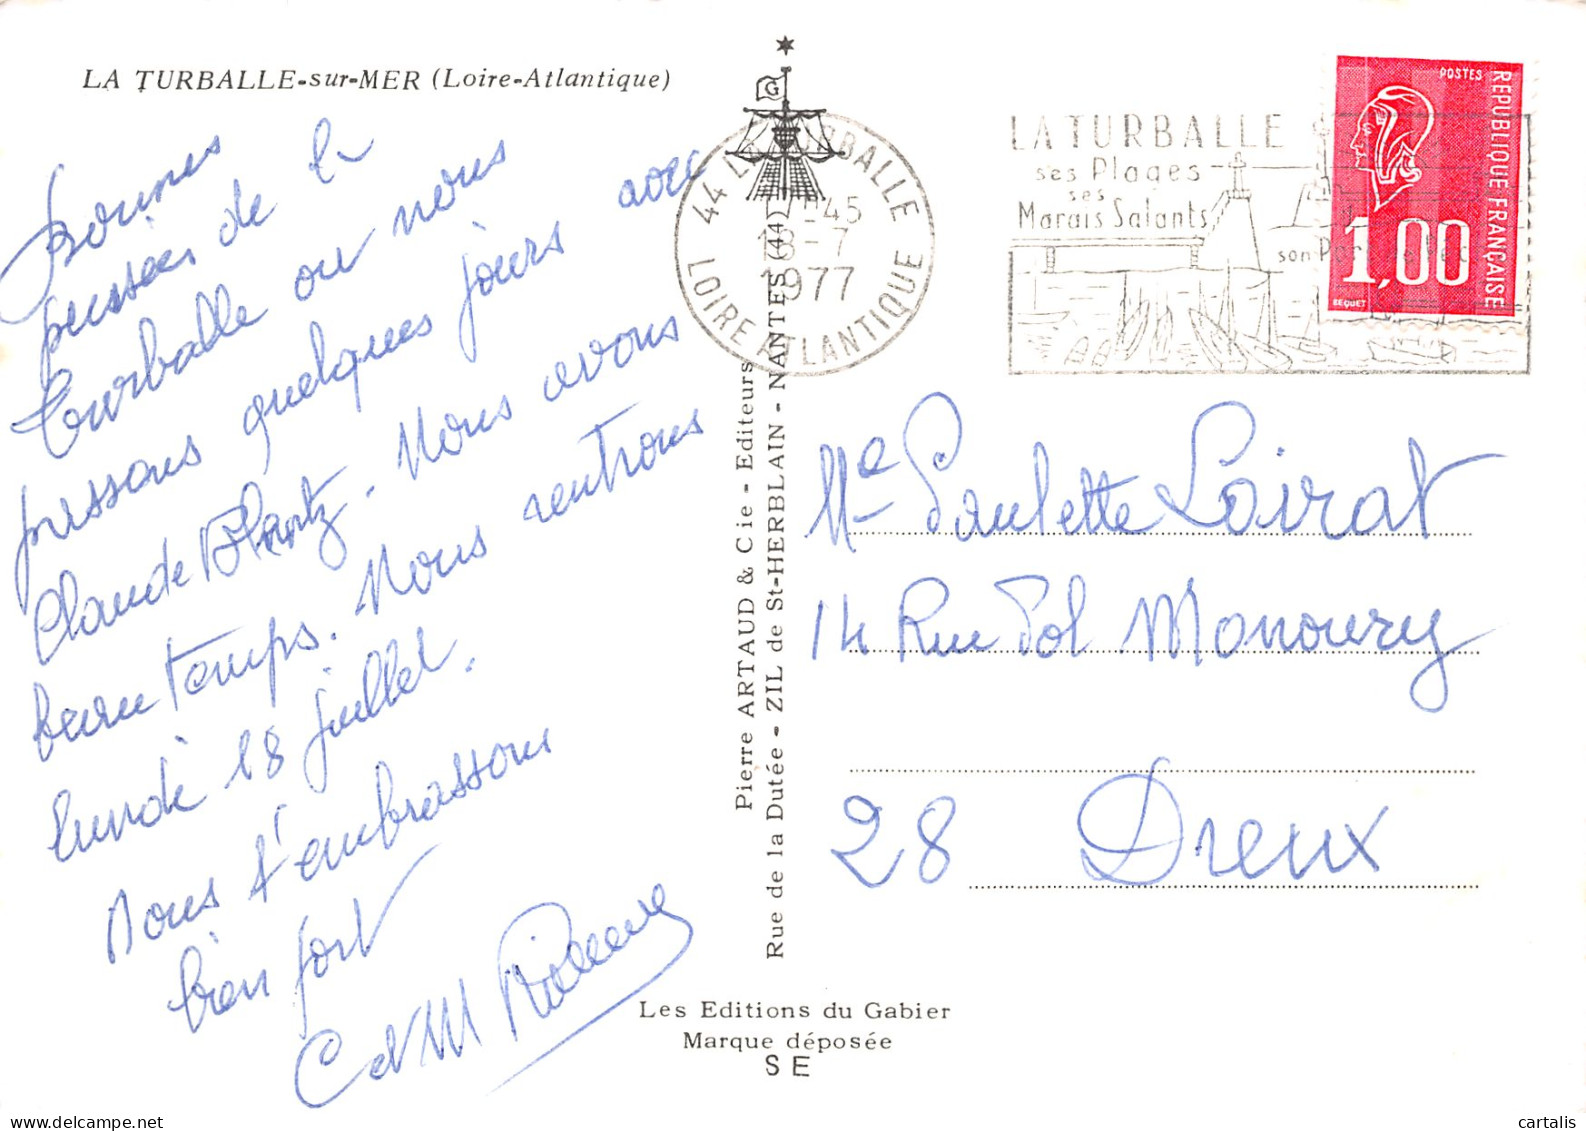 LA TURBALLE-sur-MER (Loire-Atlantique)
Bonnes
pensées de la
Turballe où nous
passons quelques jours avec
Claude. Nous avons
beau temps. Nous rentrons
lundi 18 juillet.
Nous t'embrassons
bien fort
C et M
G
44 LA TURBALLE
-45
18-7
1977
LOIRE ATLANTIQUE
LA TURBALLE
ses Plages
ses
Marais Salants
son Port
POSTES
REPUBLIQUE FRANÇAISE
1,00
BEQUET
Pierre ARTAUD & Cie - Editeurs
Rue de la Dutée - ZIL de St-HERBLAIN - NANTES (44)
Me Paulette Loirat
14 Rue Pol Monoury
28 Dreux
Les Editions du Gabier
Marque déposée
S E
delcampe.net
cartalis